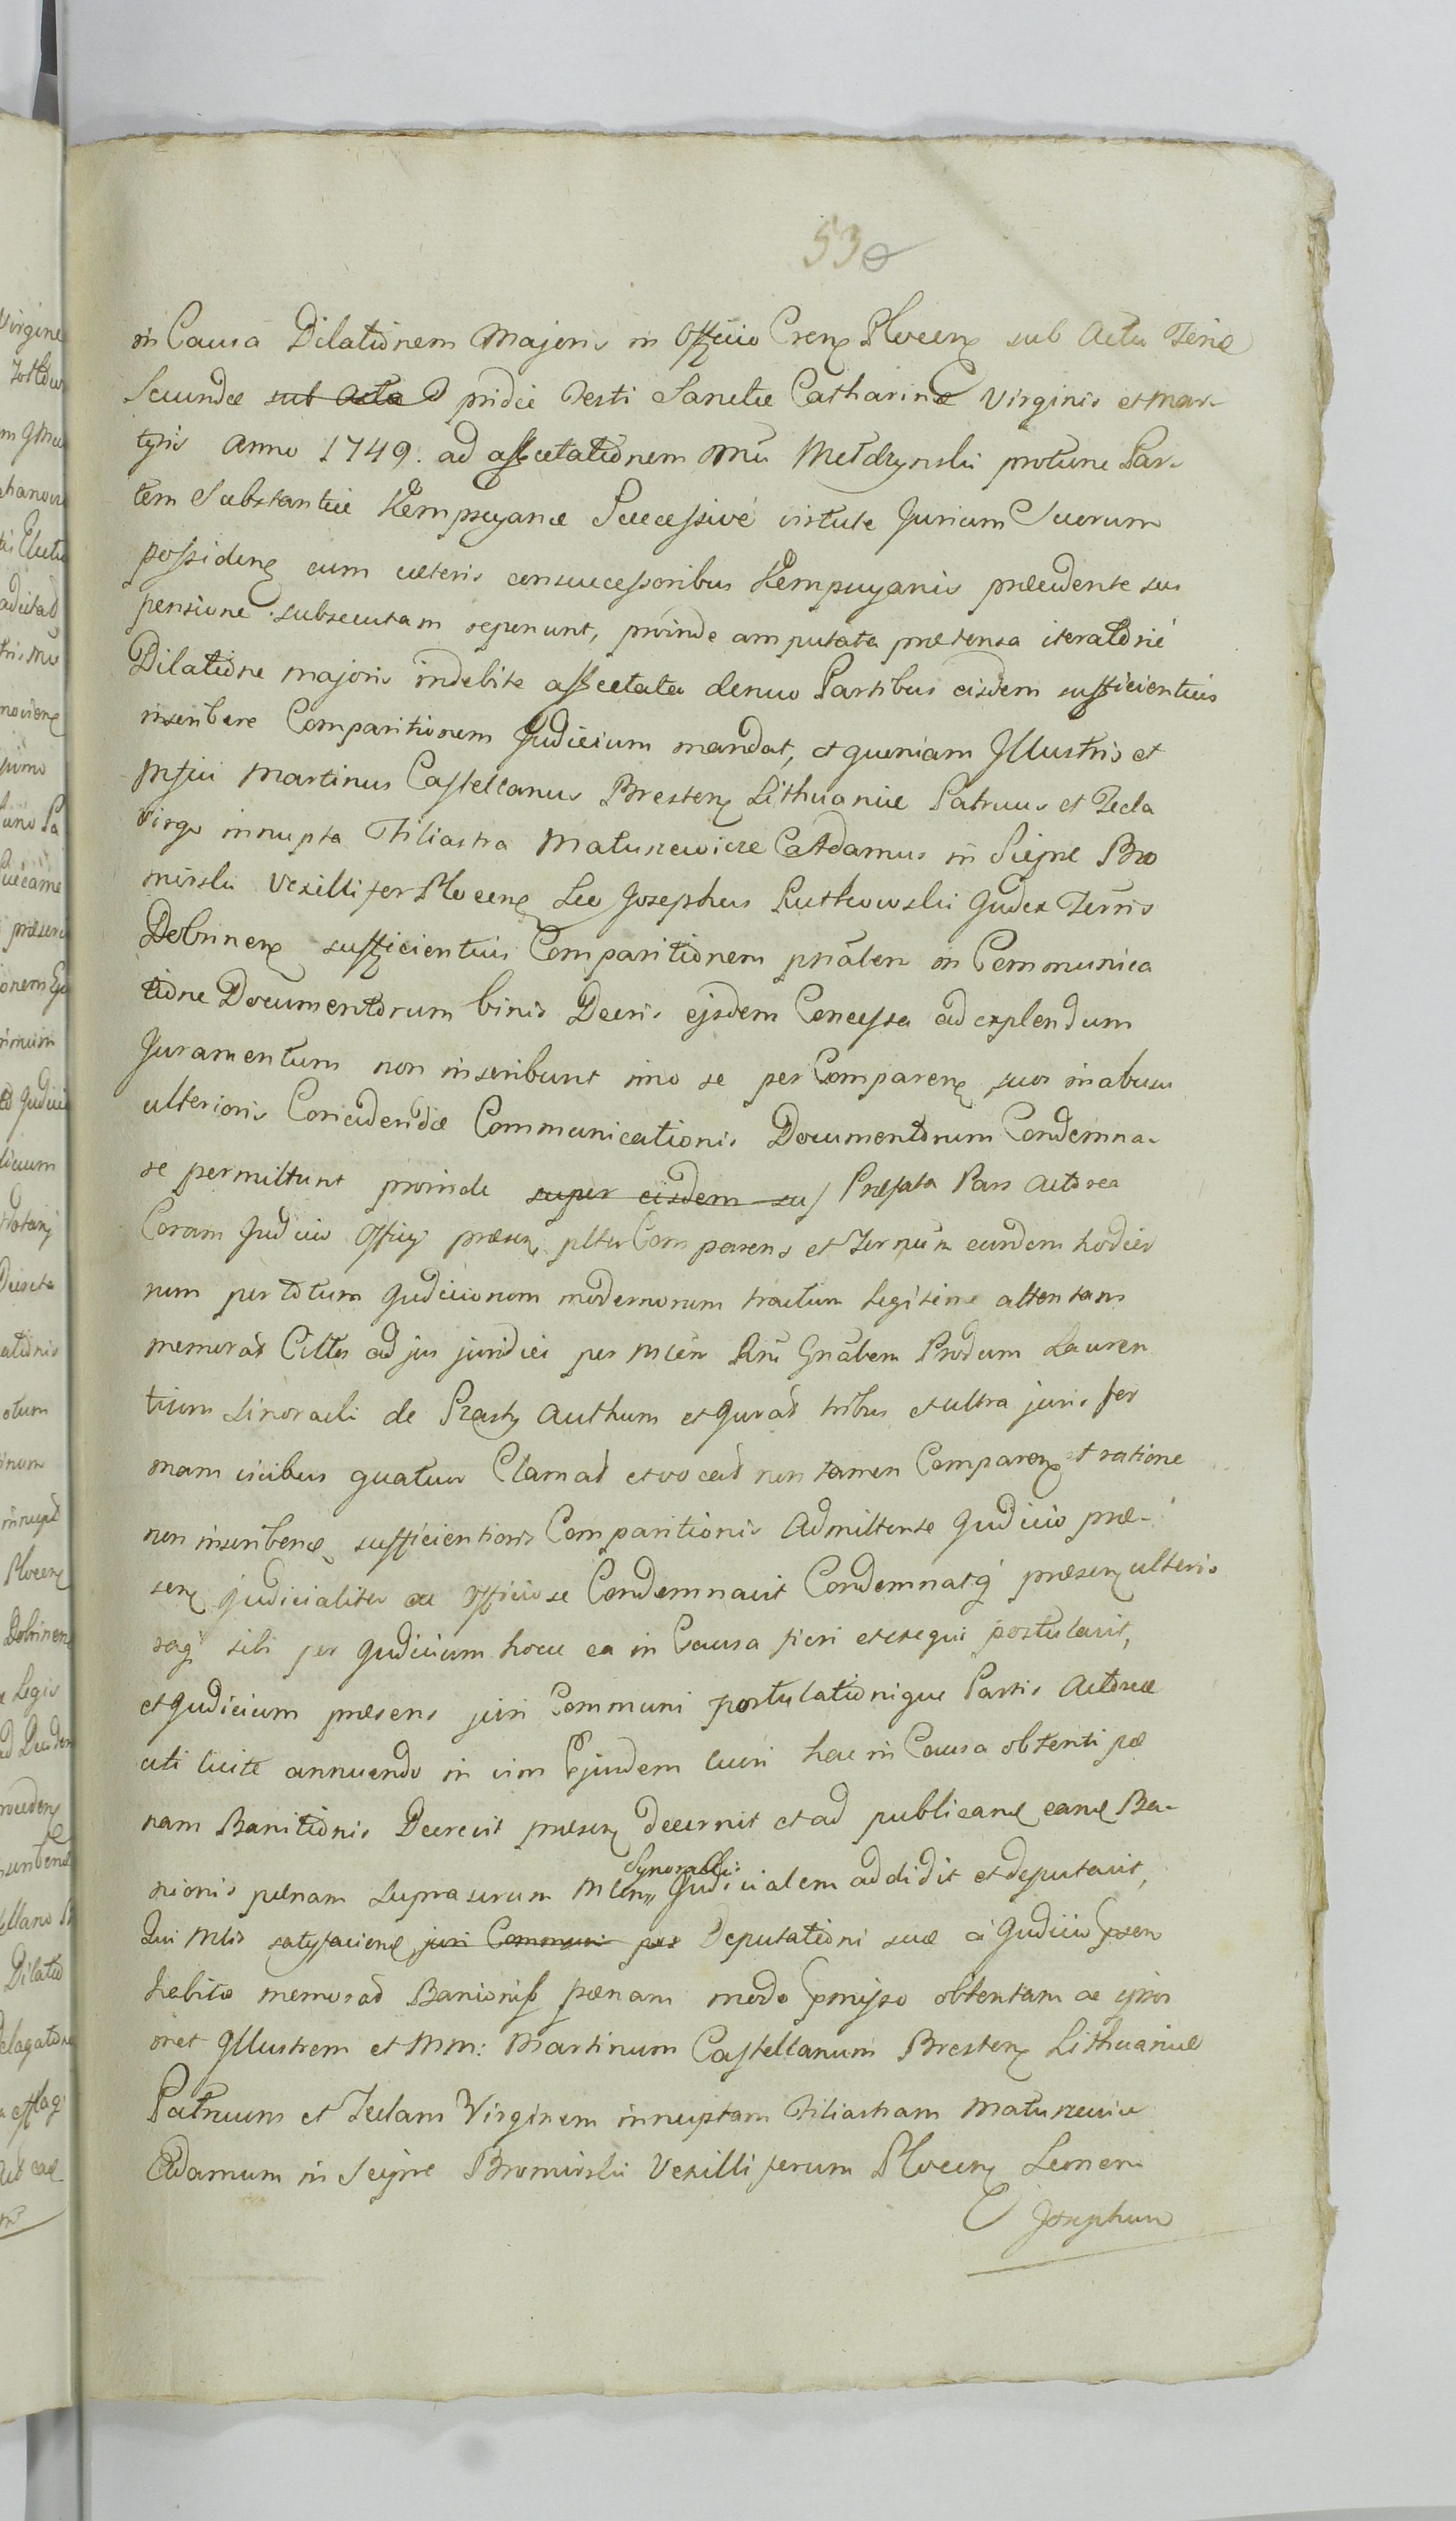 53
in Causa Dilationem Majoris in Officio Cren Plocen sub Actu Feriæ
Secundæ sub Acta pridie Festi Sanctæ Catharinæ Virginis et Mar-
tyris Anno 1749. ad affectationem Mci Mełdzynski protunc Par-
tem Substantiæ Kempscyanæ Successive virtute Jurium Suorum
possiden cum cæteris consuccessoribus Kempscyanis præcedente sus
pensione subsecutam reponunt, proinde amputata prætensa iteratorie
Dilatione majoris indebite affectata denuo Partibus eisdem sufficientius
inscribere Comparitionem Judicium mandat, et quoniam Jllustris et
Martinus Castellanus Bresten Lithuaniæ Patruus et Tecla
Virgo innupta Filiastra Matuszewicze Adamus in Siepne Bro
mirski Vexillifer Plocen Leo Josephus Rutkowski Judex Terris
Dobrinen sufficientius Comparitionem pnalem in Communica
tione Documentorum binis Decris ejsdem Concessa ad explendum
Juramentum non inscribunt imo se per Comparen suos in abusu
ulterioris Concedendæ Communicationis Documentorum Condemna-
re permittunt proinde super eisdem su Præfata Pars Actorea
Coram Judicio Officij præsen plter Comparens et Terminum eundem hodier
num per totum Judiciorum modernorum tractum legitime attentans
memorat Cittos ad jus juridici per Mlem Rni Gnalem Produm Lauren
tium Sinoracki de Prasty Authum et Jurat tribus et ultra juris for
mam vicibus quatuor Clamat et vocat non tamen Comparen et ratione
non inscribenæ sufficientioris Comparitionis Admittente Judicio præ-
sen judicialiter ac officiose Condemnavit Condemnatq præsen ulterio
raq sibi per Judicium hocce ea in Causa fieri et exequi postulavit,
et Judicium præsens juri Communi postulationique Partis Actoreæ
uti licite annuendo in vim Ejusdem lucri hac in Causa obtenti pæ
nam Banitionis Decrevit præsen decernit et ad publicane eane Ba-
nionis pænam suprascrum Mlem Synoracki: Judicialem addidit et deputavit,
Qui Mlis satysfaciene juri Communi per Deputationi suæ a Judicio præsen
habitæ memorat Banionis pænam modo præmisso obtentam ac ipsos
met Jllustrem et Mm: Martinum Castellanum Bresten Lithuaniæ
Patruum et Teclam Virginem innuptam Filiastram Matuszewicze
Adamum in Siepne Bromirski Vexilliferum Plocen Leonem
Josephum